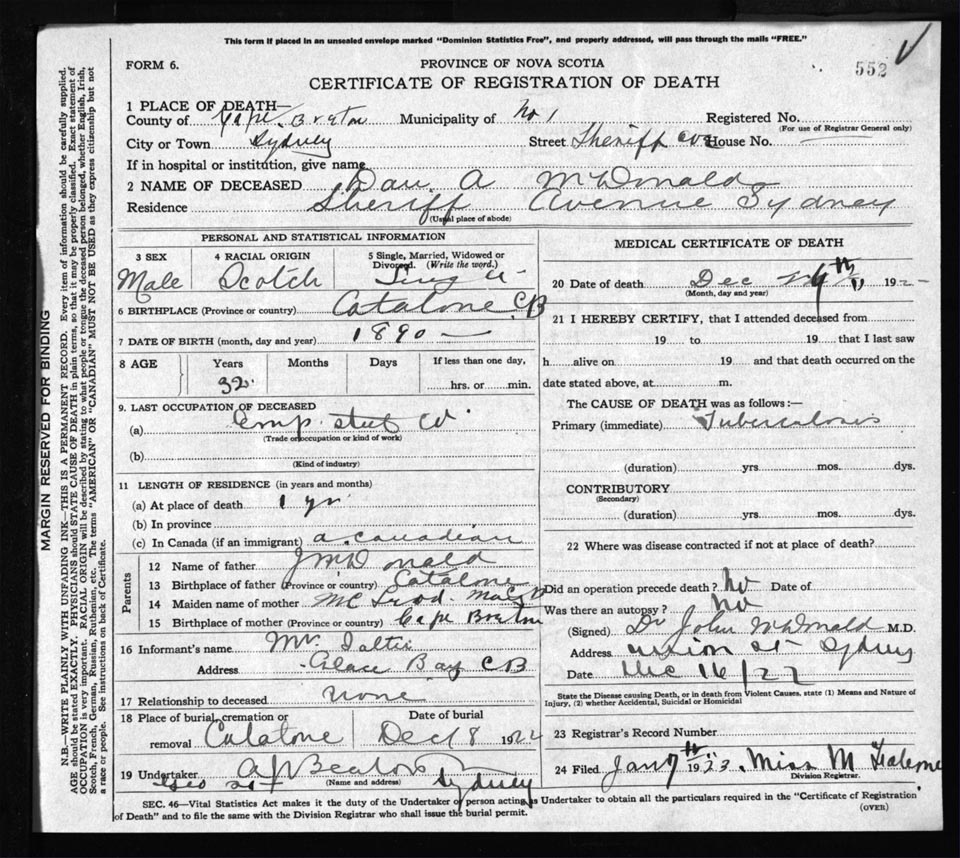 This form if placed in an unsealed envelope marked "Dominion Statistics Free", and properly addressed, will pass through the mails "FREE."
FORM 6.
PROVINCE OF NOVA SCOTIA
552
CERTIFICATE OF REGISTRATION OF DEATH
MARGIN RESERVED FOR BINDING
N.B.—WRITE PLAINLY WITH UNFADING INK—THIS IS A PERMANENT RECORD. Every item of information should be carefully supplied.
AGE should be stated EXACTLY. PHYSICIANS should STATE CAUSE OF DEATH in plain terms, so that it may be properly classified. Exact statement of
OCCUPATION is very important. RACIAL ORIGIN will be described by stating to what people or tongue the deceased person belonged, whether English, Irish,
Scotch, French, German, Russian, Ruthenian, etc. The terms "AMERICAN" OR "CANADIAN" MUST NOT BE USED as they express citizenship but not
a race or people. See instructions on back of Certificate.
1 PLACE OF DEATH—
County of Cape Breton Municipality of No 1 Registered No.
(For use of Registrar General only)
City or Town Sydney Street Sheriff Ave House No.
If in hospital or institution, give name
2 NAME OF DECEASED Dan. A McDonald
Residence Sheriff Avenue Sydney
(Usual place of abode)
PERSONAL AND STATISTICAL INFORMATION
3 SEX
Male
4 RACIAL ORIGIN
Scotch
5 Single, Married, Widowed or
Divorced. (Write the word.)
Single
6 BIRTHPLACE (Province or country) Catalone C.B
7 DATE OF BIRTH (month, day and year) 1890
8 AGE
Years
32
Months
Days
If less than one day,
hrs. or min.
9. LAST OCCUPATION OF DECEASED
(a) Emp. Steel Co
(Trade or occupation or kind of work)
(b)
(Kind of industry)
11 LENGTH OF RESIDENCE (in years and months)
(a) At place of death 1 yr
(b) In province
(c) In Canada (if an immigrant) a Canadian
Parents
12 Name of father J McDonald
13 Birthplace of father (Province or country) Catalone
14 Maiden name of mother
15 Birthplace of mother (Province or country) Cape Breton
16 Informant's name Mr.
Address Glace Bay CB
17 Relationship to deceased none
18 Place of burial, cremation or
removal Catalone
Date of burial
Dec 18 192
19 Undertaker A J Beaton
(Name and address)
Geo St Sydney
MEDICAL CERTIFICATE OF DEATH
20 Date of death Dec 192
(Month, day and year)
21 I HEREBY CERTIFY, that I attended deceased from
19 to 19 that I last saw
h alive on 19 and that death occurred on the
date stated above, at m.
The CAUSE OF DEATH was as follows:—
Primary (immediate) Tuberculosis
(duration) yrs. mos. dys.
CONTRIBUTORY
(Secondary)
(duration) yrs. mos. dys.
22 Where was disease contracted if not at place of death?
Did an operation precede death? No Date of
Was there an autopsy? No
(Signed) Dr John McDonald M.D.
Address Union St Sydney
Date Dec 16/22
State the Disease causing Death, or in death from Violent Causes, state (1) Means and Nature of
Injury, (2) whether Accidental, Suicidal or Homicidal
23 Registrar's Record Number
24 Filed Jan 7th 1923. Miss M
Division Registrar.
SEC. 46—Vital Statistics Act makes it the duty of the Undertaker or person acting as Undertaker to obtain all the particulars required in the "Certificate of Registration
of Death" and to file the same with the Division Registrar who shall issue the burial permit.
(OVER)